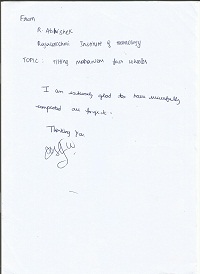 From
R. Abishek
Institute of technology
TOPIC : Tilting mechanism four wheeler
I am extremely glad to have successfully
completed
Thanking You